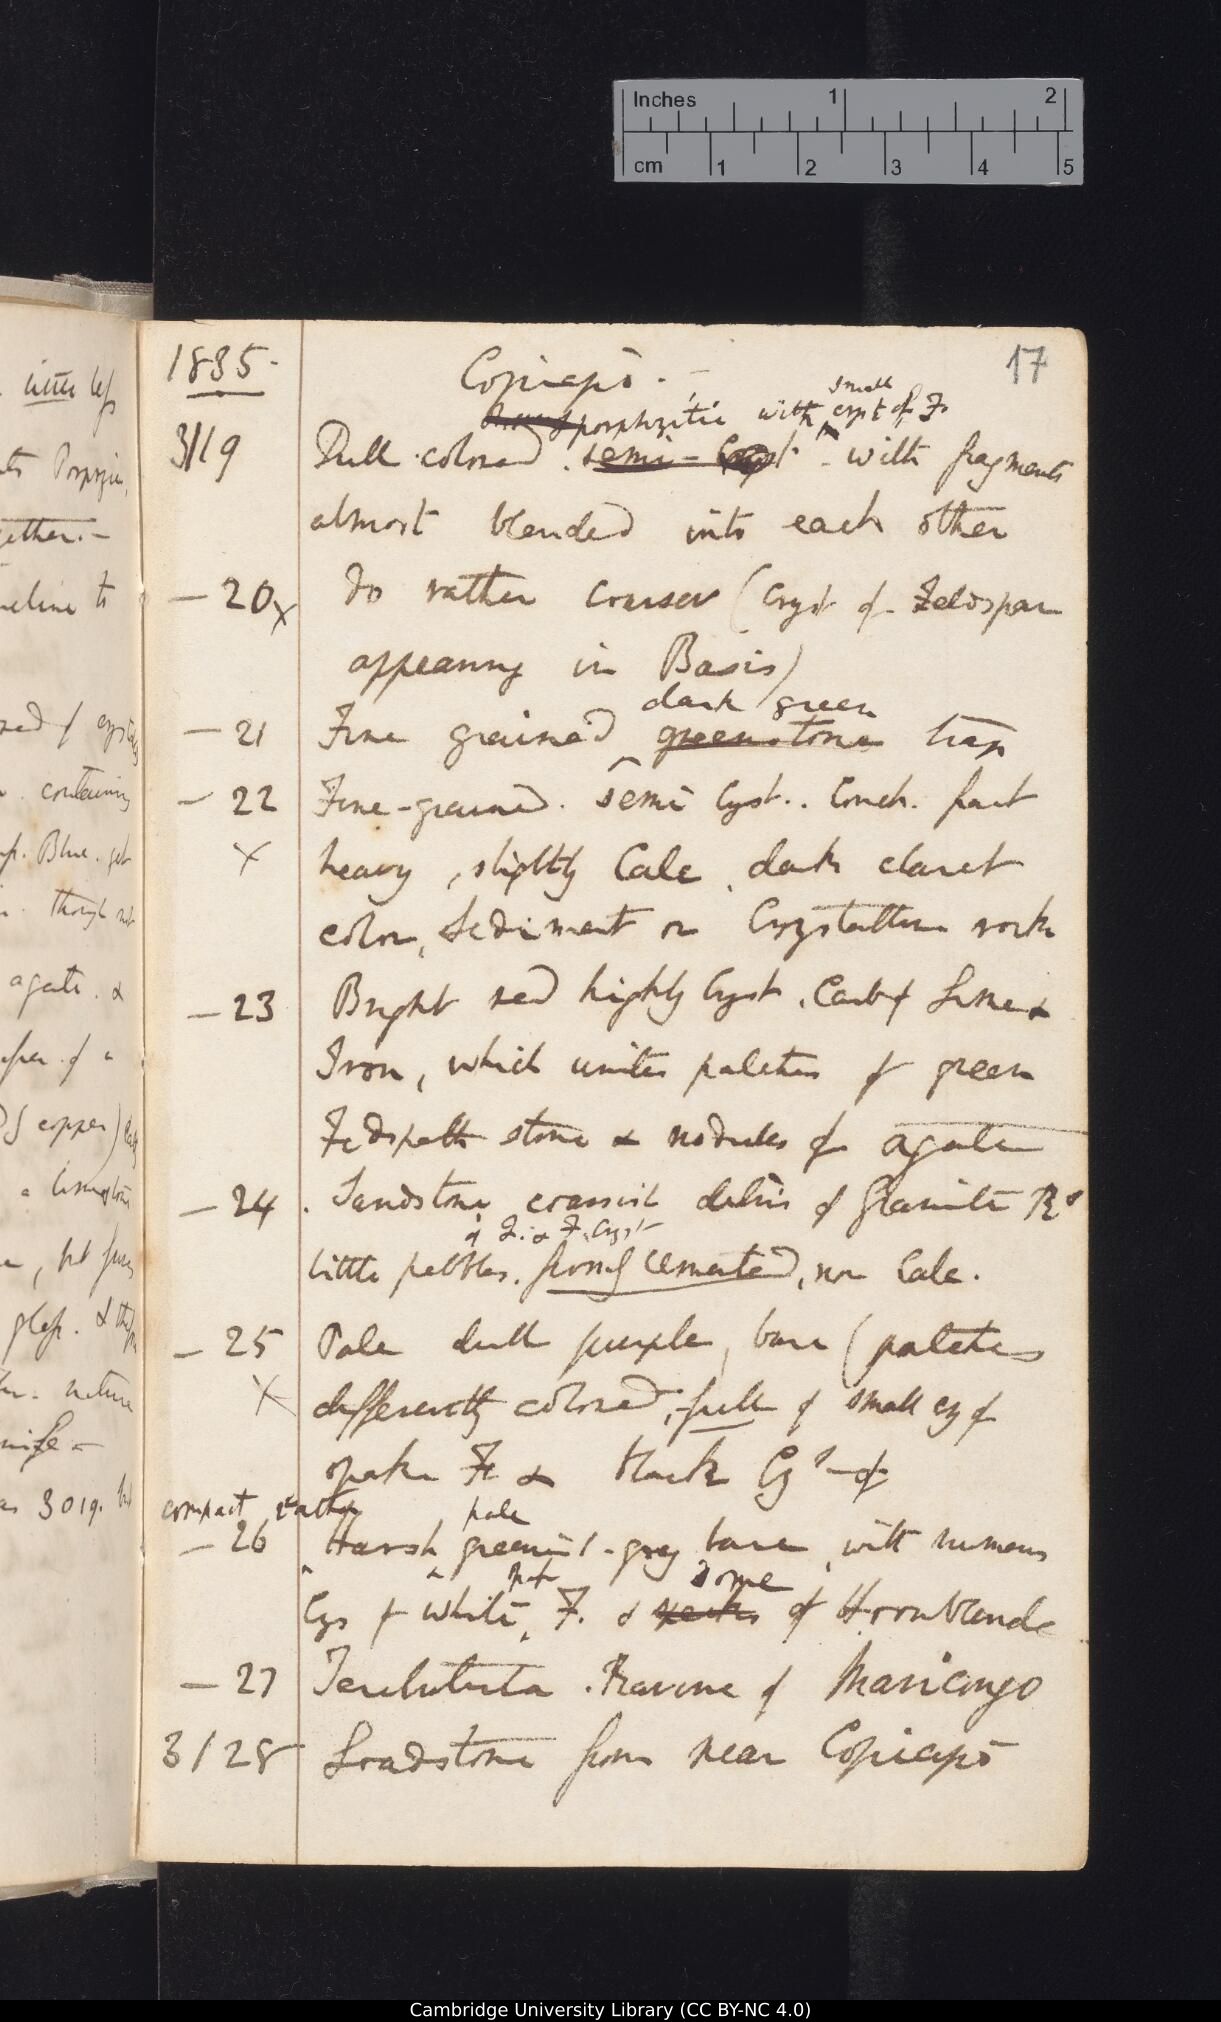 Inches 1 2
cm 1 2 3 4 5
1835.
Copiapò. —
17
small
porphyritic with cryst of F.
3119 Dull colored semi-Cryst with fragments
almost blended into each other
— 20 x do rather coarser (Cryst of Feldspar
appearing in Basis)
dark green
— 21 Fine grained greenstone trap
— 22 Fine-grained. semi Cryst.. Conch. fract
x heavy, slightly Calc, dark claret
color, Sediment or Crystalline rock
— 23 Bright red highly Cryst. Carb of Lime &
Iron, which unites patches of green
Fedspath stone & nodules of agate
— 24 Sandstone, coarsish debris of Granite Rs
of F. & F. Cryst
little pebbles, firmly Cemented, non Calc.
— 25 Pale dull purple, base (patches
x differently colored, full of small cry of
opake Fe & black Crys of
compact, rather pale
— 26 Harsh greenish-grey base, with numerous
some
Crys of white, F. & specks of Hornblende
— 27 Terebratula. Ravine of Maricongo
3128 Loadstone from near Copiapò
little less
together. —
containing
Blue
though not
agate. &
of copper)
a limestone
nature
knife —
as 3019. but
Cambridge University Library (CC BY-NC 4.0)